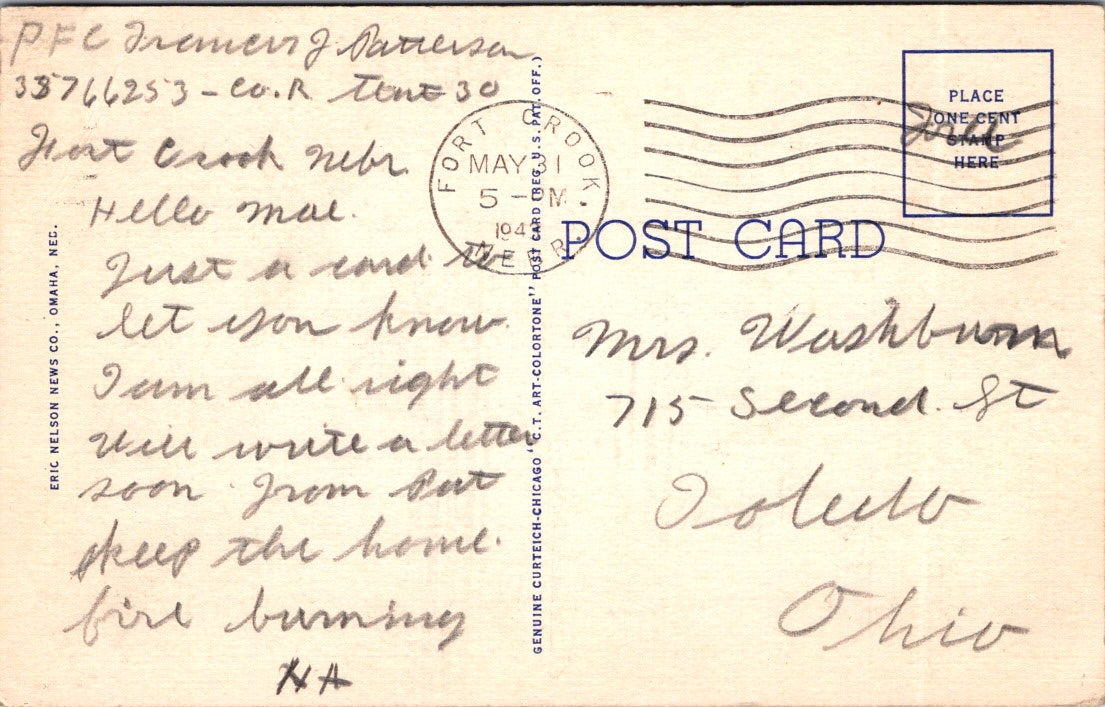 PFC Francis J. Patterson
38766253 - Co. R Tent 30
Fort Crook Nebr.
Hello Mae.
Just a card to
let you know
I am all right
Will write a letter
soon From Pat
keep the home
fire burning
HA
ERIC NELSON NEWS CO., OMAHA, NEB.
GENUINE CURTEICH-CHICAGO "C.T. ART-COLORTONE" POST CARD (REG. U.S. PAT. OFF.)
FORT CROOK.
MAY 31
5 - PM
194
NEBR.
POST CARD
PLACE
ONE CENT
STAMP
HERE
Free
Mrs. Washburn
715 Second. St
Toledo
Ohio